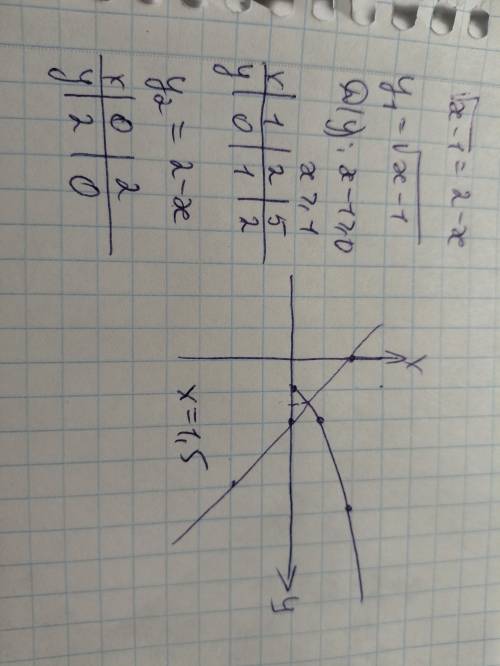 √x-1 = 2-x
y₁ = √x-1
D(y): x-1≥0
x≥1
x | 1 | 2 | 5
y | 0 | 1 | 2
y₂ = 2-x
x | 0 | 2
y | 2 | 0
x
y
x = 1,5